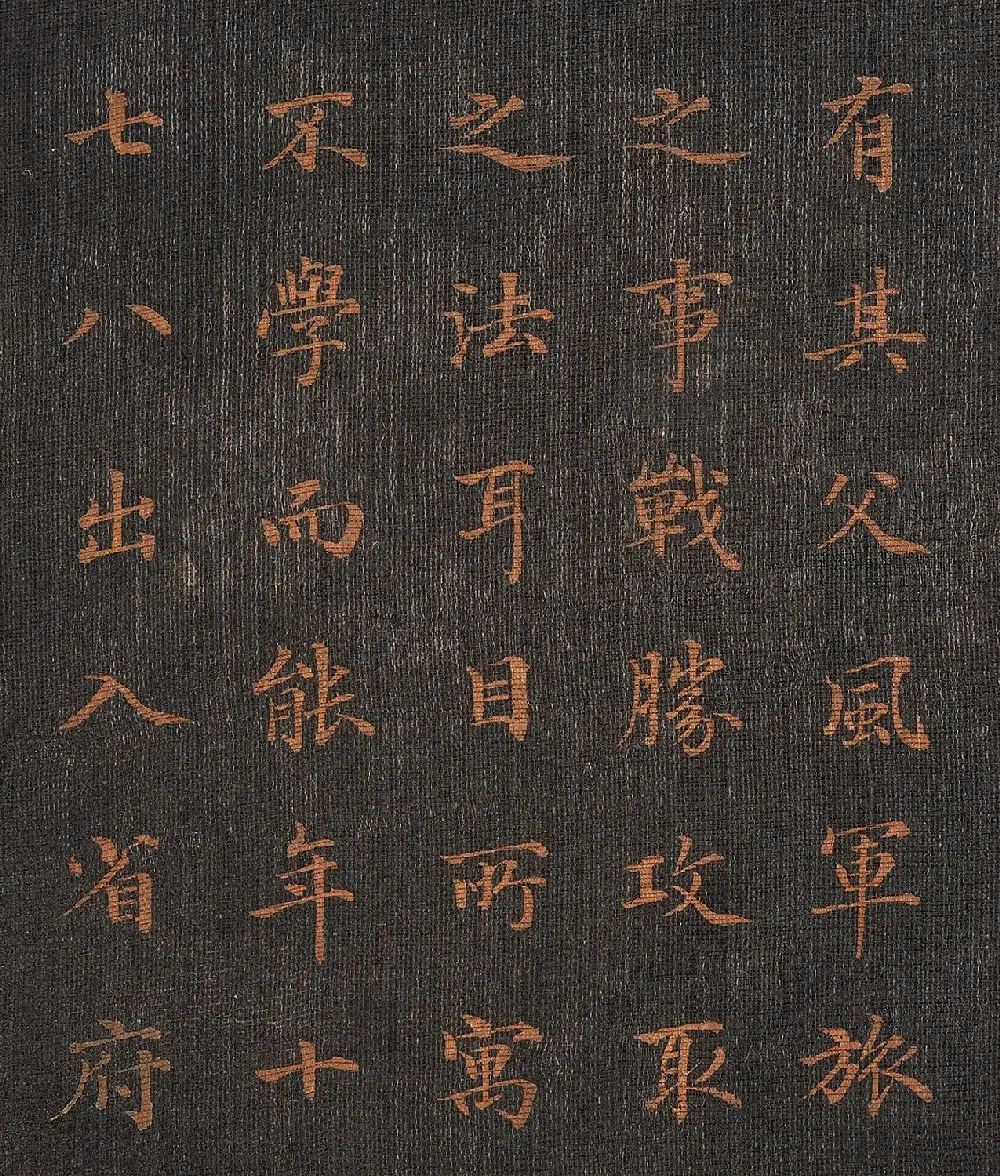 有其父風軍旅
之事戰勝攻取
之法耳目所寓
不學而能年十
七八出入省府